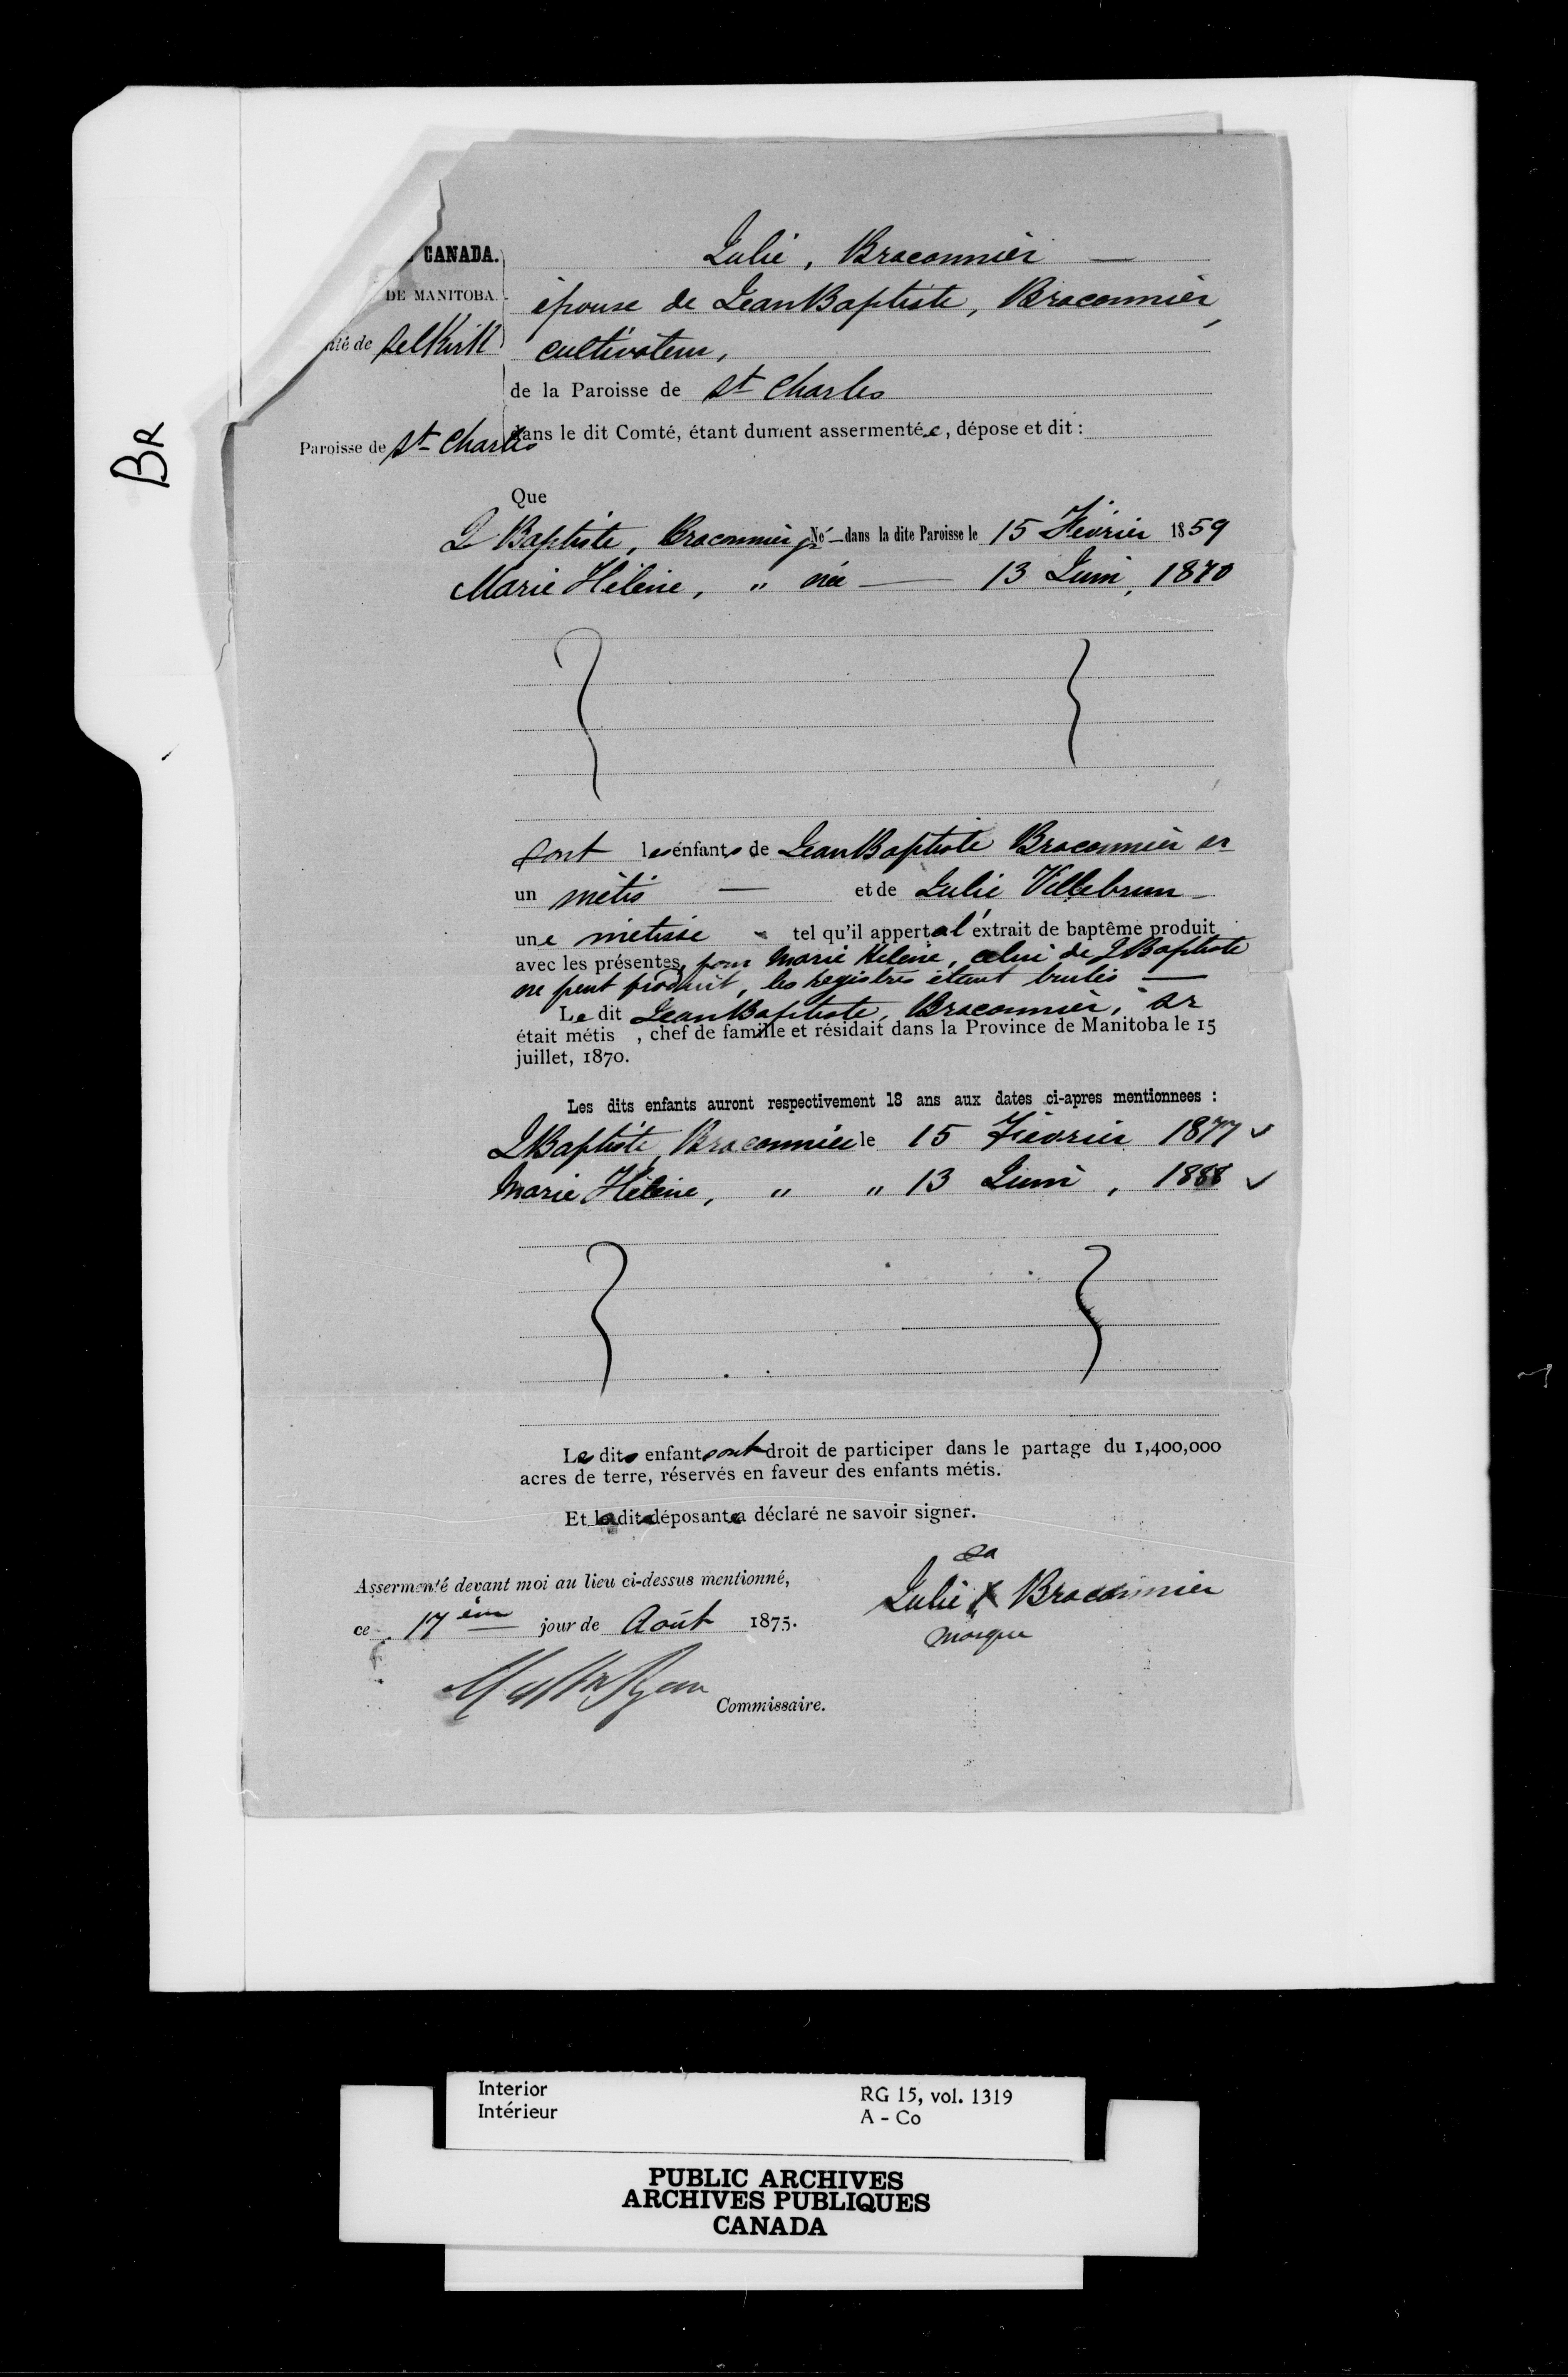 BR
CANADA.
DE MANITOBA.
té de Selkirk
Paroisse de St Charles
Julie, Braconnier —
épouse de Jean Baptiste, Braconnier,
cultivateur,
de la Paroisse de St Charles
dans le dit Comté, étant dument assermentée, dépose et dit :
Que
J Baptiste, Braconnier jr Né — dans la dite Paroisse le 15 Février 1859
Marie Hélène, " née — 13 Juin, 1870
sont les enfants de Jean Baptiste Braconnier sr
un métis — et de Julie Villebrun —
une métisse - tel qu'il appert al'extrait de baptême produit
avec les présentes, pour Marie Hélène, celui de J Baptiste
ne peut produit, les registres étant brulés —
Le dit Jean Baptiste, Braconnier, sr
était métis , chef de famille et résidait dans la Province de Manitoba le 15
juillet, 1870.
Les dits enfants auront respectivement 18 ans aux dates ci-apres mentionnees :
J Baptiste, Braconnier le 15 Février 1877 ✓
Marie Hélène, " " 13 Juin, 1888 ✓
Les dits enfants ont droit de participer dans le partage du 1,400,000
acres de terre, réservés en faveur des enfants métis.
Et la dite déposante a déclaré ne savoir signer.
Assermenté devant moi au lieu ci-dessus mentionné,
ce 17 ème jour de Août 1875.
sa
Julie X Braconnier
marque
Ryan
Commissaire.
Interior
Intérieur
RG 15, vol. 1319
A - Co
PUBLIC ARCHIVES
ARCHIVES PUBLIQUES
CANADA